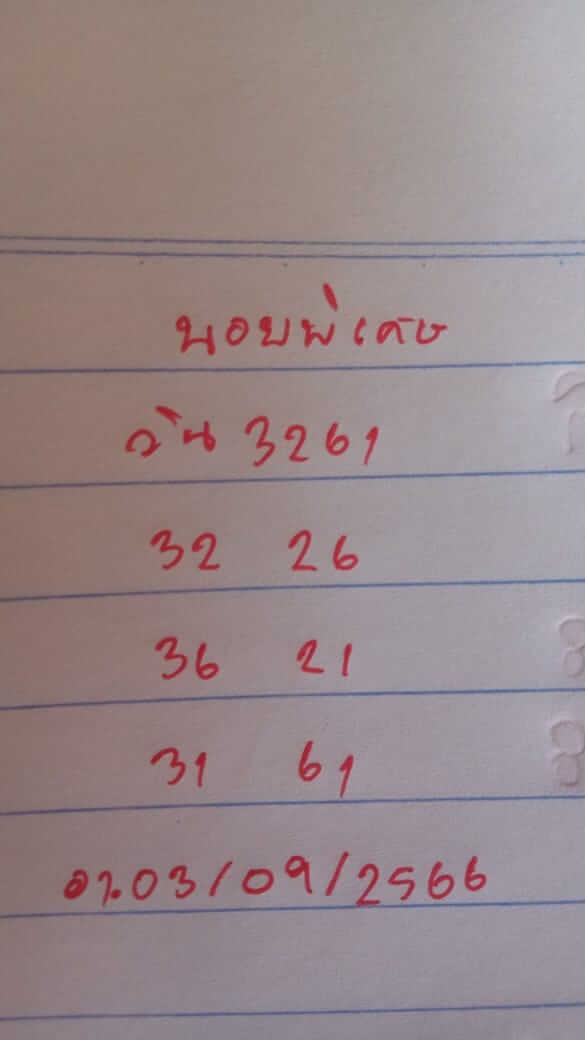 นอยพิเศษ
วิ่น 3261
32 26
36 21
31 61
อา.03/09/2566